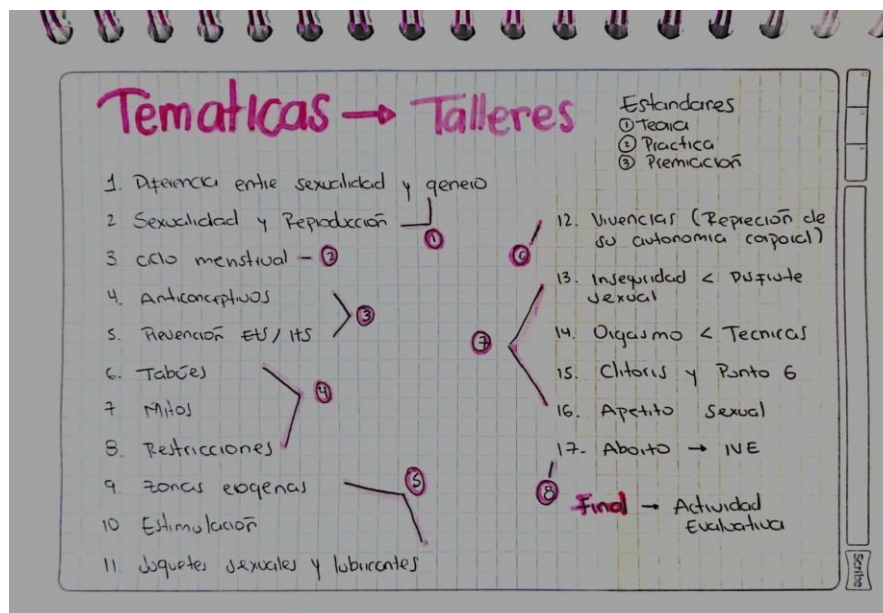 Tematicas → Talleres
Estandares
① Teoria
② Practica
③ Premiación
1. Diferencia entre sexualidad y genero
2 Sexualidad y Reproducción
①
3 ciclo menstrual - ②
4. Anticonceptivos
5. Prevención ETS / ITS
③
6. Tabúes
7 Mitos
8. Restricciones
④
9. zonas erogenas
10 Estimulación
11. Juguetes sexuales y lubricantes
⑤
12. Vivencias (Represión de
su autonomia corporal)
⑥
13. Inseguridad < Disfrute
sexual
14. Orgasmo < Tecnicas
15. Clitoris y Punto G
16. Apetito sexual
⑦
17- Aborto → IVE
⑧
Final → Actividad
Evaluativa
Scribe